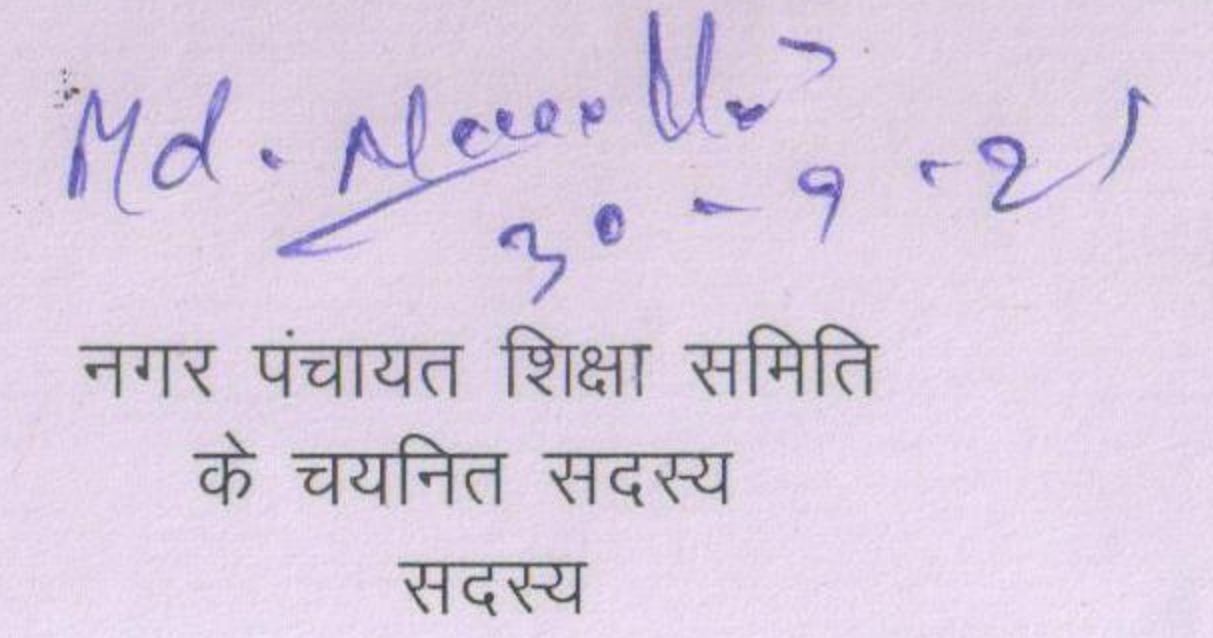 Md.
30-9-21
नगर पंचायत शिक्षा समिति
के चयनित सदस्य
सदस्य